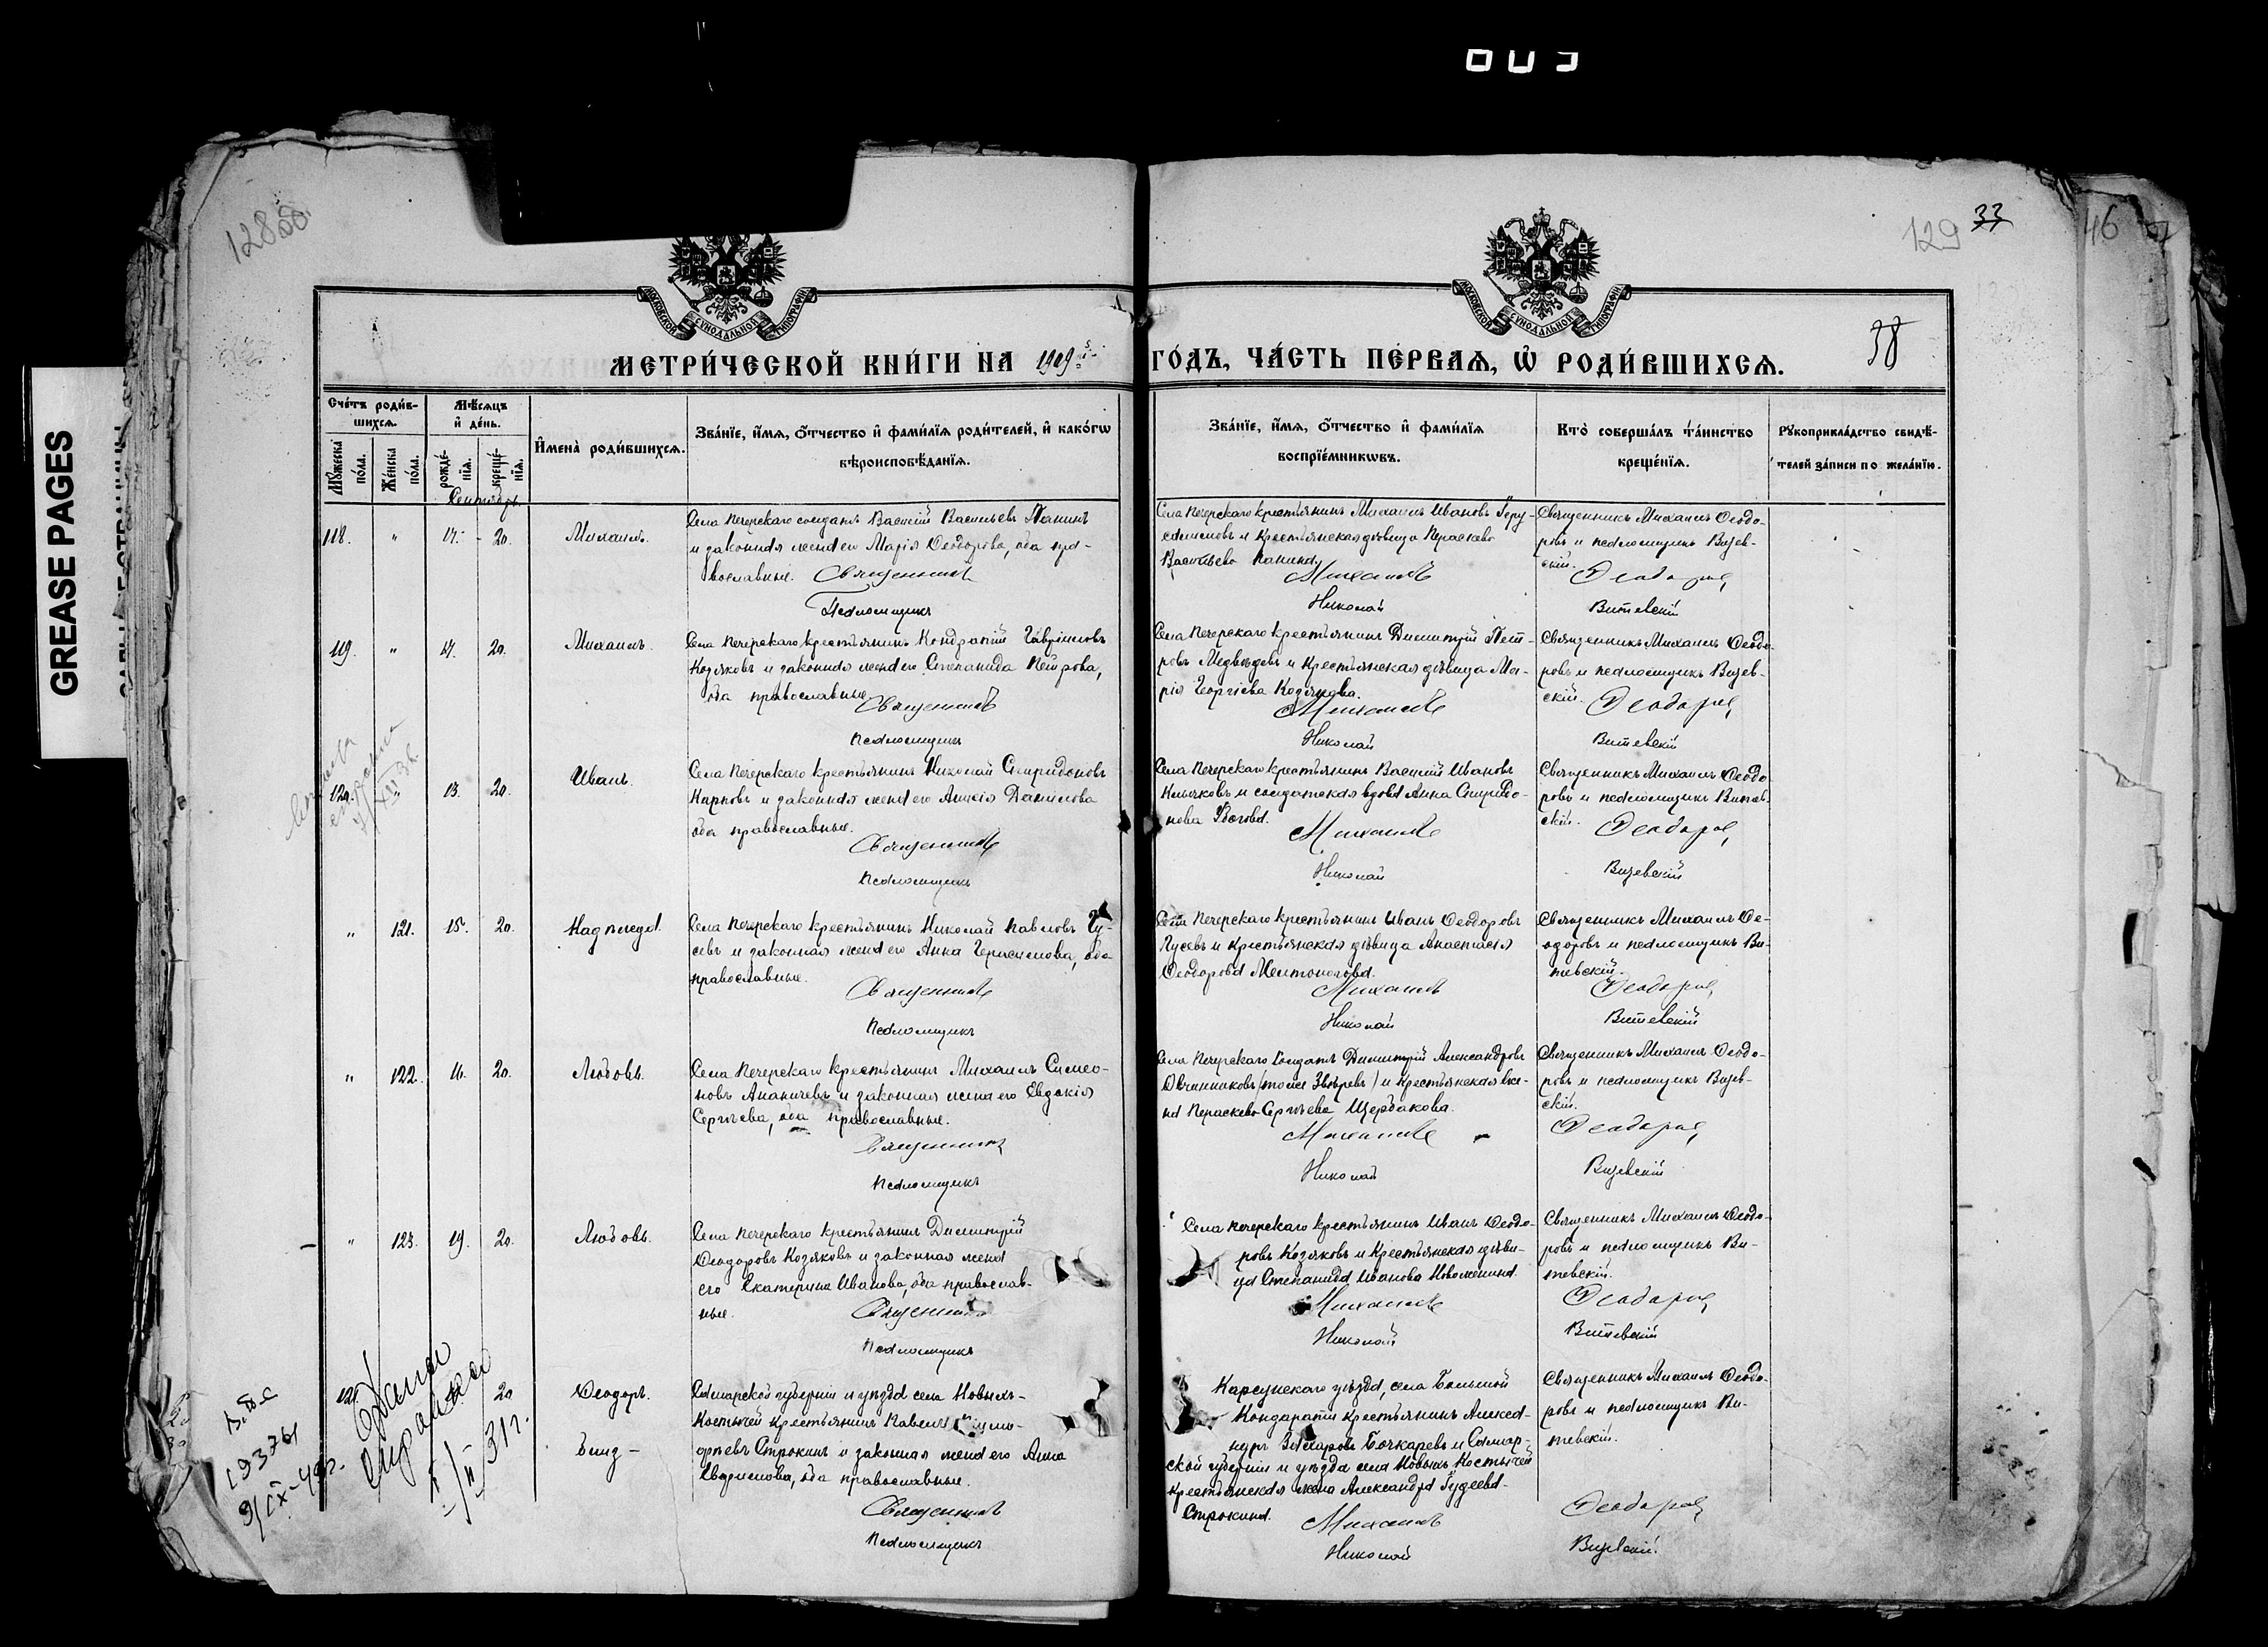 GREASE PAGES
12858
129 33
46
38
МОСКОВСКОЙ СѴНОДАЛЬНОЙ ТИПОГРАФІИ
МОСКОВСКОЙ СѴНОДАЛЬНОЙ ТИПОГРАФІИ
МЕТРИ́ЧЕСКОЙ КНИ́ГИ НА 1909й ГО́ДЪ, ЧА́СТЬ ПЕ́РВАѦ, Ѽ РОДИ́ВШИХСѦ.
Сче́тъ роди́в-
шихсѧ.
Мꙋ́жеска по́ла.
Же́нска по́ла.
Мѣ́сѧцъ
и҆ де́нь.
рожде́-
нїѧ.
креще́-
нїѧ.
И҆мена̀ роди́вшихсѧ.
Зва́нїе, и҆́мѧ, ѻ҆́тчество и҆ фами́лїѧ роди́телей, и҆ како́гѡ
вѣроисповѣ́данїѧ.
Зва́нїе, и҆́мѧ, ѻ҆́тчество и҆ фами́лїѧ
воспрїе́мникѡвъ.
Кто̀ соверша́лъ та́инство
креще́нїѧ.
Рꙋкоприкла́дство свидѣ́-
телей за́писи по жела́нїю.
Сентябрь
118. " 17. 20. Михаилъ.
Села Печерскаго солдатъ Василій Васильевъ Панинъ
и законная жена его Марія Ѳеодорова, оба пра-
вославные. Священникъ
Псаломщикъ
Села Печерскаго крестьянинъ Михаилъ Ивановъ Геру-
салимовъ и крестьянская дѣвица Параскева
Васильева Панина.
Михаилъ
Николай
Священникъ Михаилъ Ѳеодо-
ровъ и псаломщикъ Витев-
скій. Ѳеодоровъ
Витевскій
119. " 17. 20. Михаилъ.
Села Печерскаго крестьянинъ Кондратій Гавріиловъ
Козяковъ и законная жена его Степанида Петрова,
оба православные.
Священникъ
Псаломщикъ
Села Печерскаго крестьянинъ Димитрій Пет-
ровъ Медвѣдевъ и крестьянская дѣвица Ма-
рія Георгіева Козякова.
Михаилъ
Николай
Священникъ Михаилъ Ѳеодо-
ровъ и псаломщикъ Витев-
скій. Ѳеодоровъ
Витевскій
120. " 13. 20. Иванъ.
Села Печерскаго крестьянинъ Николай Спиридоновъ
Карповъ и законная жена его Анисія Данилова
оба православные.
Священникъ
Псаломщикъ
Села Печерскаго крестьянинъ Василій Ивановъ
и солдатская вдова Анна Спиридо-
нова
Михаилъ
Николай
Священникъ Михаилъ Ѳеодо-
ровъ и псаломщикъ Витев-
скій. Ѳеодоровъ
Витевскій
" 121. 15. 20. Надежда.
Села Печерскаго крестьянинъ Николай Павловъ Гу-
севъ и законная жена его Анна Герасимова, оба
православные.
Священникъ
Псаломщикъ
Села Печерскаго крестьянинъ Иванъ Ѳеодоровъ
Гусевъ и крестьянская дѣвица Анастасія
Ѳеодорова Желтоногова.
Михаилъ
Николай
Священникъ Михаилъ Ѳе-
одоровъ и псаломщикъ Ви-
тевскій.
Ѳеодоровъ
Витевскій
" 122. 16. 20. Любовь.
Села Печерскаго крестьянинъ Михаилъ Симео-
новъ Ананичевъ и законная жена его Евдокія
Сергѣева, оба православные.
Священникъ
Псаломщикъ
Села Печерскаго Солдатъ Димитрій Александровъ
Овчинниковъ (тоже Звѣревъ) и крестьянская же-
на Параскева Сергѣева Щербакова.
Михаилъ
Николай
Священникъ Михаилъ Ѳеодо-
ровъ и псаломщикъ Витев-
скій.
Ѳеодоровъ
Витевскій
" 123. 19. 20. Любовь.
Села Печерскаго крестьянинъ Димитрій
Ѳеодоровъ Козяковъ и законная жена
его Екатерина Иванова, оба православ-
ные. Священникъ
Псаломщикъ
Села Печерскаго крестьянинъ Иванъ Ѳеодо-
ровъ Козяковъ и крестьянская дѣви-
ца Степанида Иванова Новоженина.
Михаилъ
Николай
Священникъ Михаилъ Ѳеодо-
ровъ и псаломщикъ Ви-
тевскій.
Ѳеодоровъ
Витевскій
20 Ѳеодоръ.
близ-
Самарской губерніи и уѣзда села Новыхъ-
Костычей крестьянинъ Павелъ
Строкинъ и законная жена его Анна
оба православные.
Священникъ
Псаломщикъ
Карсунскаго уѣзда, села Большой
Кондарати крестьянинъ Алексан-
дръ Захаровъ Бочкаревъ и Самар-
ской губерніи и уѣзда села Новыхъ Костычей
крестьянская жена Александра Гудеева-
Строкина.
Михаилъ
Николай
Священникъ Михаилъ Ѳеодо-
ровъ и псаломщикъ Ви-
тевскій.
Ѳеодоровъ
Витевскій
Дана
справка
31г.